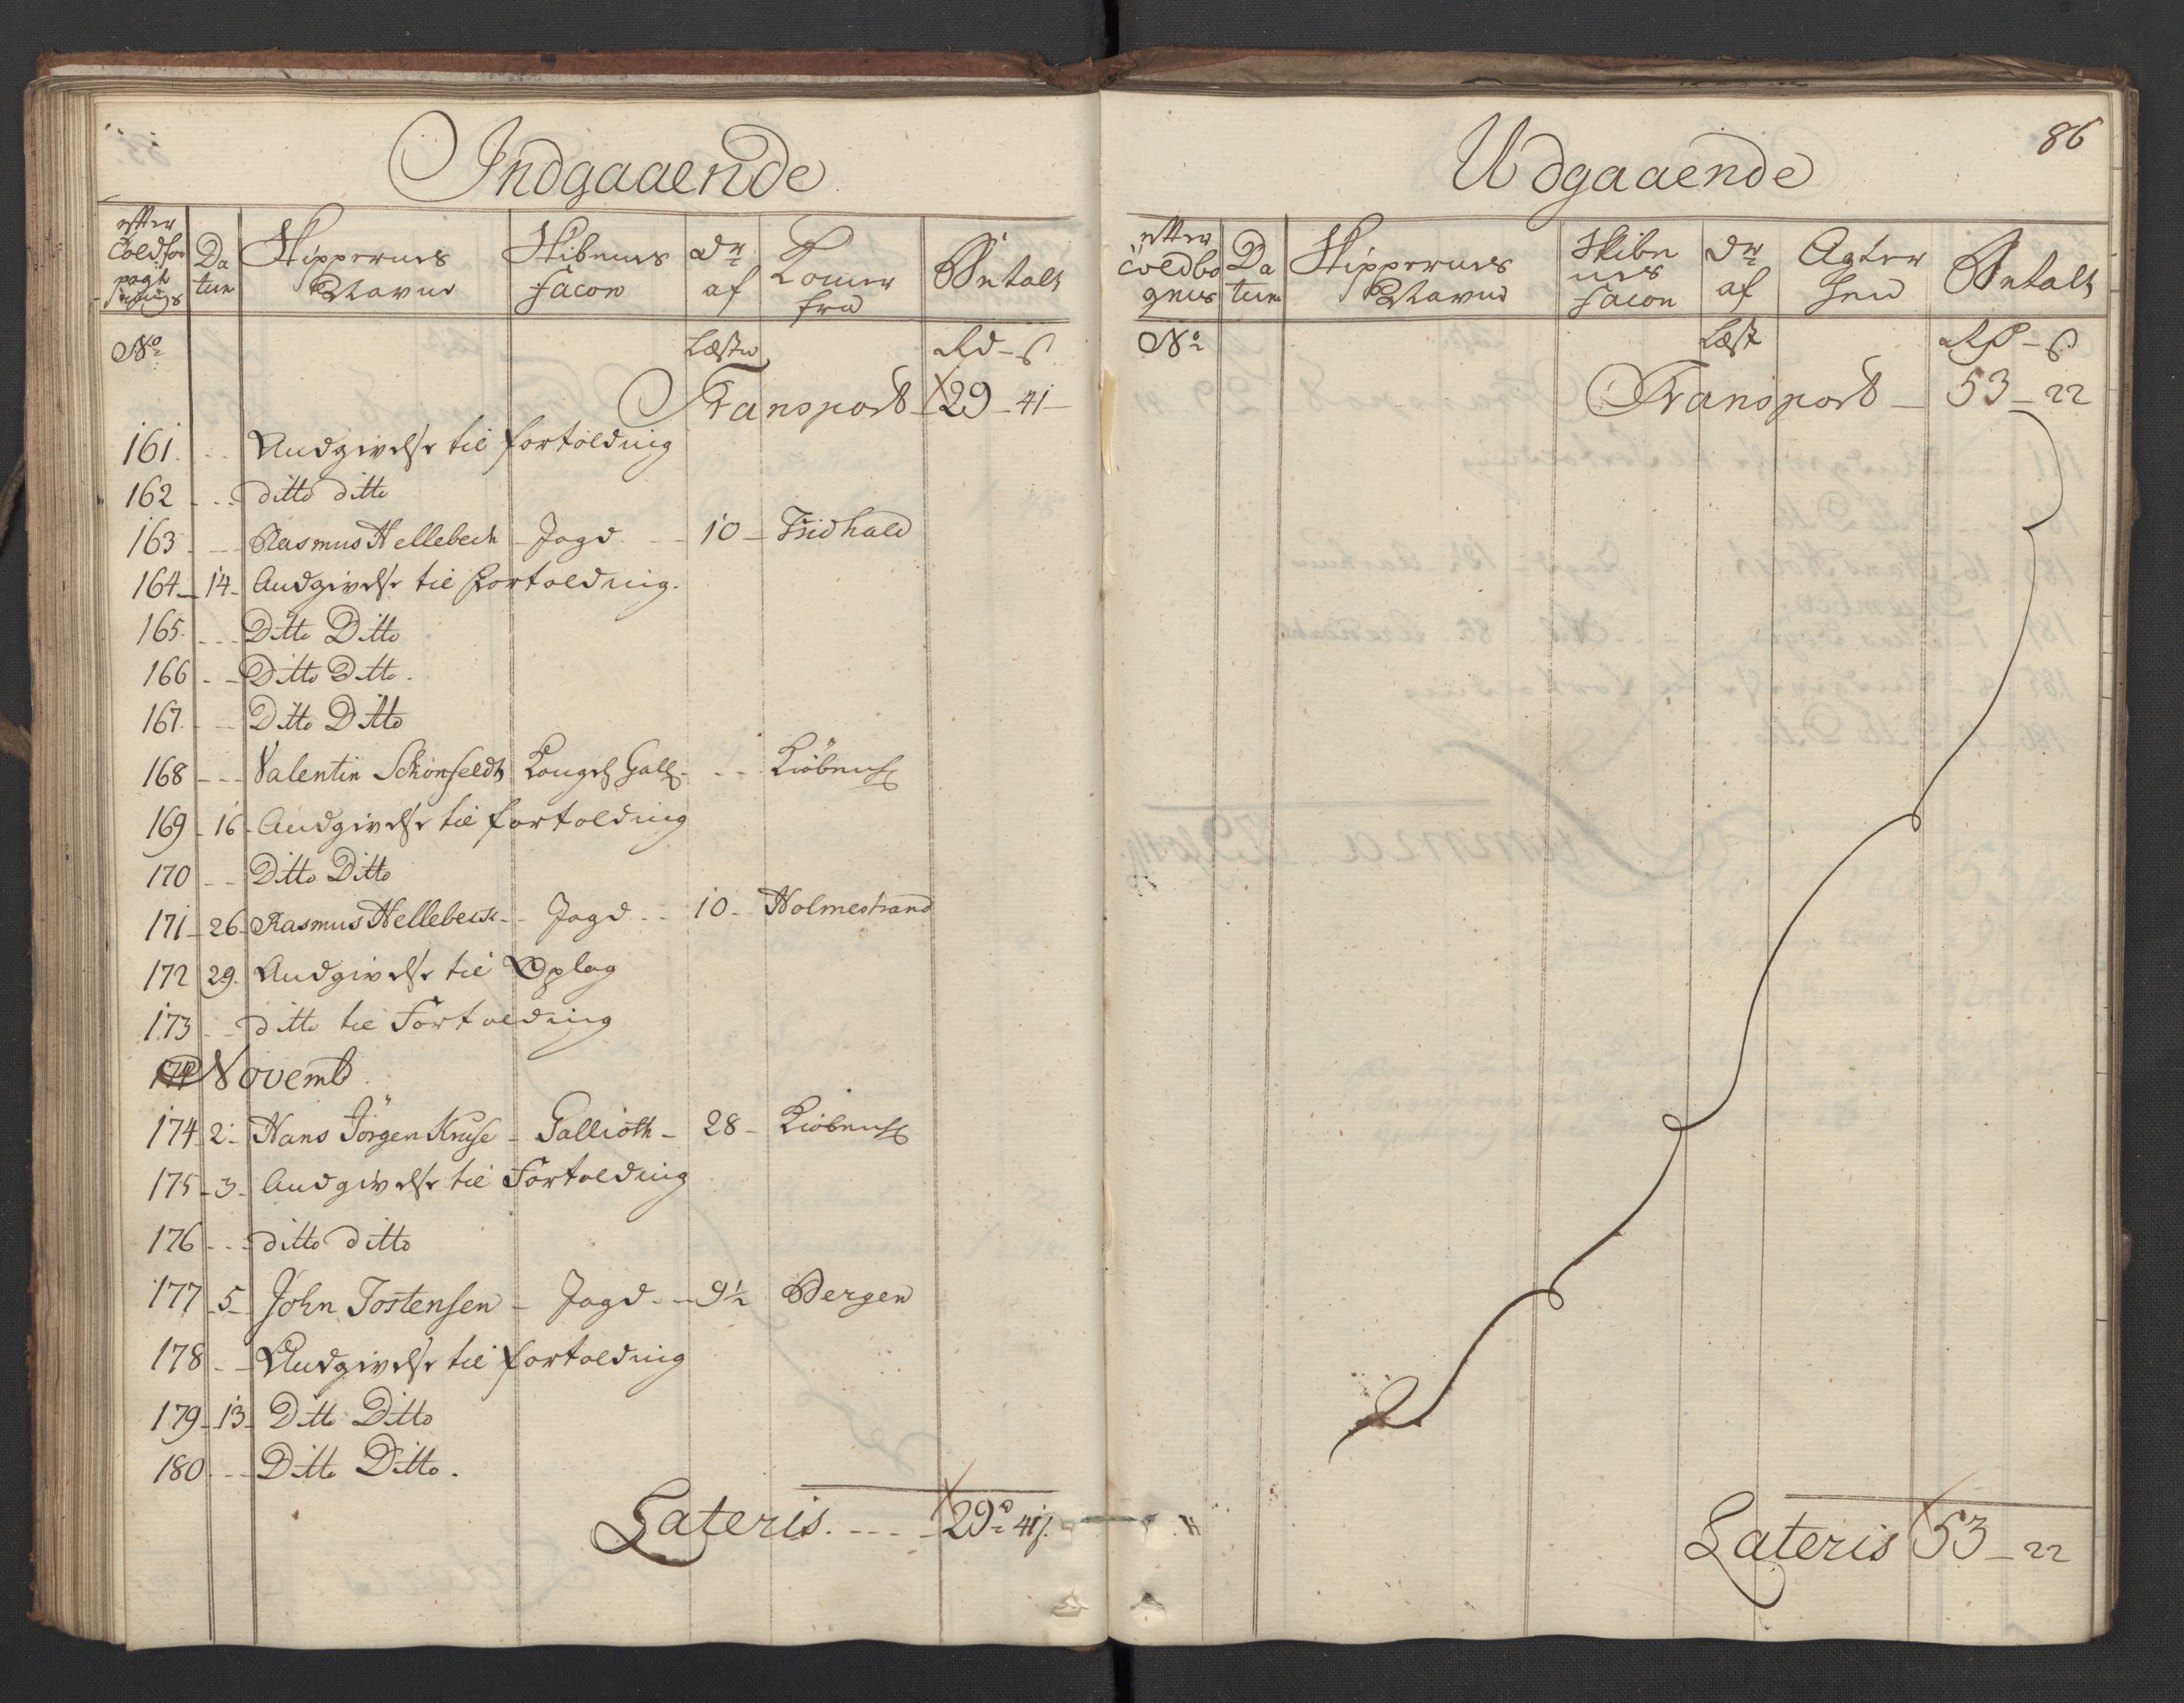 Indgaaende
efter Toldfor pagt nings
Da tum
Skippernes Navne
Skibenes Facon
Dr. af
Komer fra
Betalt
No
Læster
Rd - ß
Transport - 29 - 41 -
161. Andgivelse til fortolding
162 ditto ditto
163 Rasmus Hellebech - Jagd 10 - Fridhald
164 - 14 - Andgivelse til Fortolding.
165. Ditto Ditto
166 - Ditto Ditto.
167. Ditto Ditto
168 - Valentin Schönfeldt Kongel Gall - Kiöbenh
169 - 16 - Andgivelse til fortolding
170 Ditto Ditto
171 - 26 - Rasmus Hellebech - Jagd 10 - Holmestrand
172 29. Andgivelse til Oplag
173 ditto til Fortolding
Novemb.
174 - 2 - Hans Jörgen Kruse - Gallioth - 28 - Kiöbenh
175 - 3 - Andgivelse til Fortolding
176 ditto ditto
177 - 5 - John Jostensen - Jagd - 9½ Bergen
178 - Andgivelse til fortolding
179 - 13 - Ditto Ditto
180 Ditto Ditto.
Lateris. - 29 - 41 ß.
86
Udgaaende
efter Toldbo gens
Da tum
Skippernes Navne
Skibe nes Facon
Dr. af
Agter hen
Betalt
No
Læst
Rd - ß
Transport - 53 - 22
Lateris 53 - 22